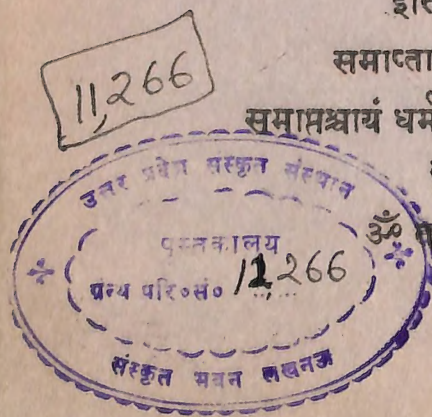 इति
समाप्ता
समाप्तश्चायं धर्म
11,266
उत्तर प्रदेश संस्कृत संस्थान
पुस्तकालय
ॐ
ग्रन्थ परि०सं० 11,266
संस्कृत भवन लखनऊ